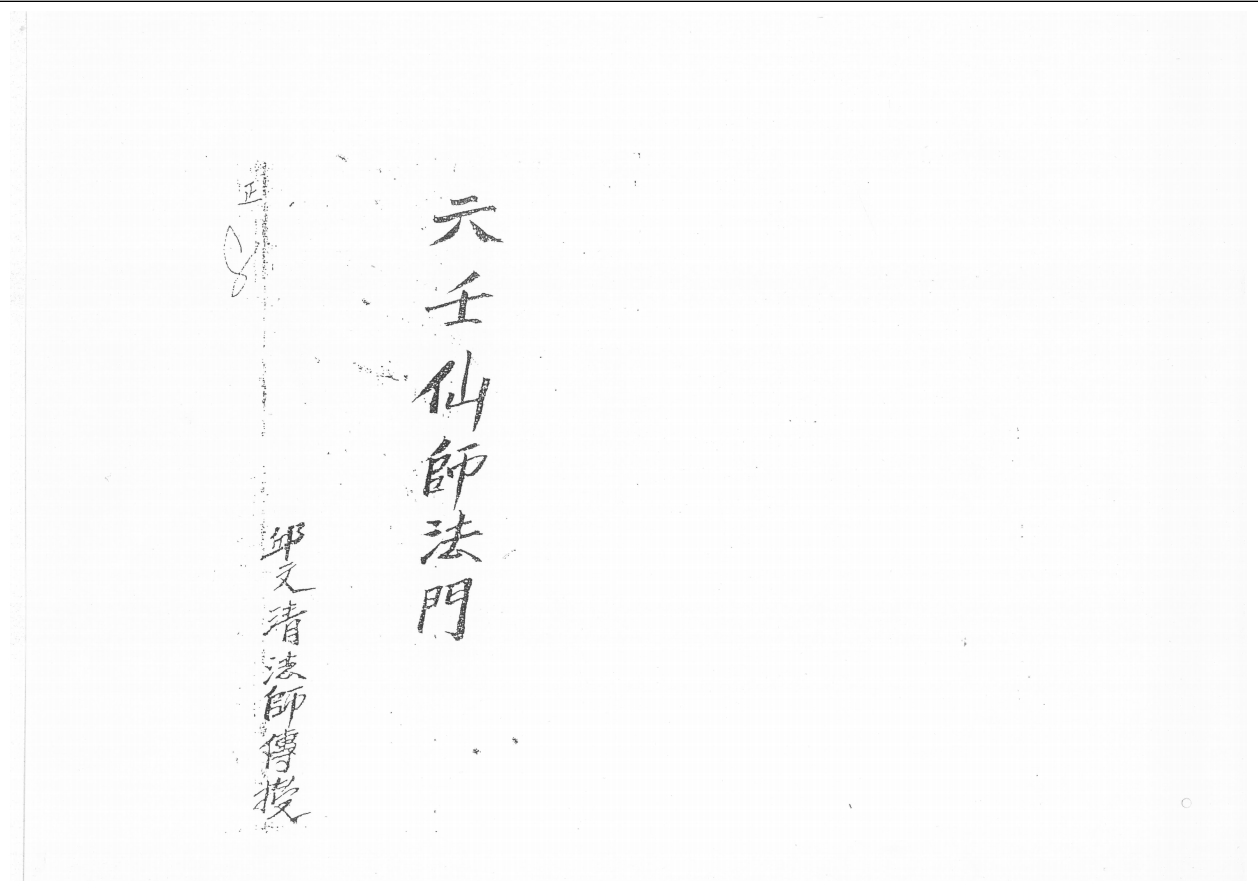 六壬仙師法門
邱文清法師傳授
正